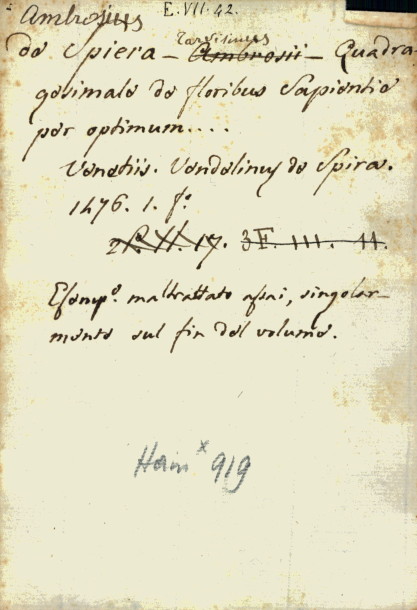 E. VII. 42.
Ambrosius
Tarvisinus
de Spiera – Ambrosii – Quadra-
gesimale de floribus Sapientie
per optimum....
Venetiis. Vendelinus de Spira.
1476. 1. fo.
3F. III. 11.
Esempo. maltrattato assai, singolar-
mente sul fin del volume.
Hain x 919